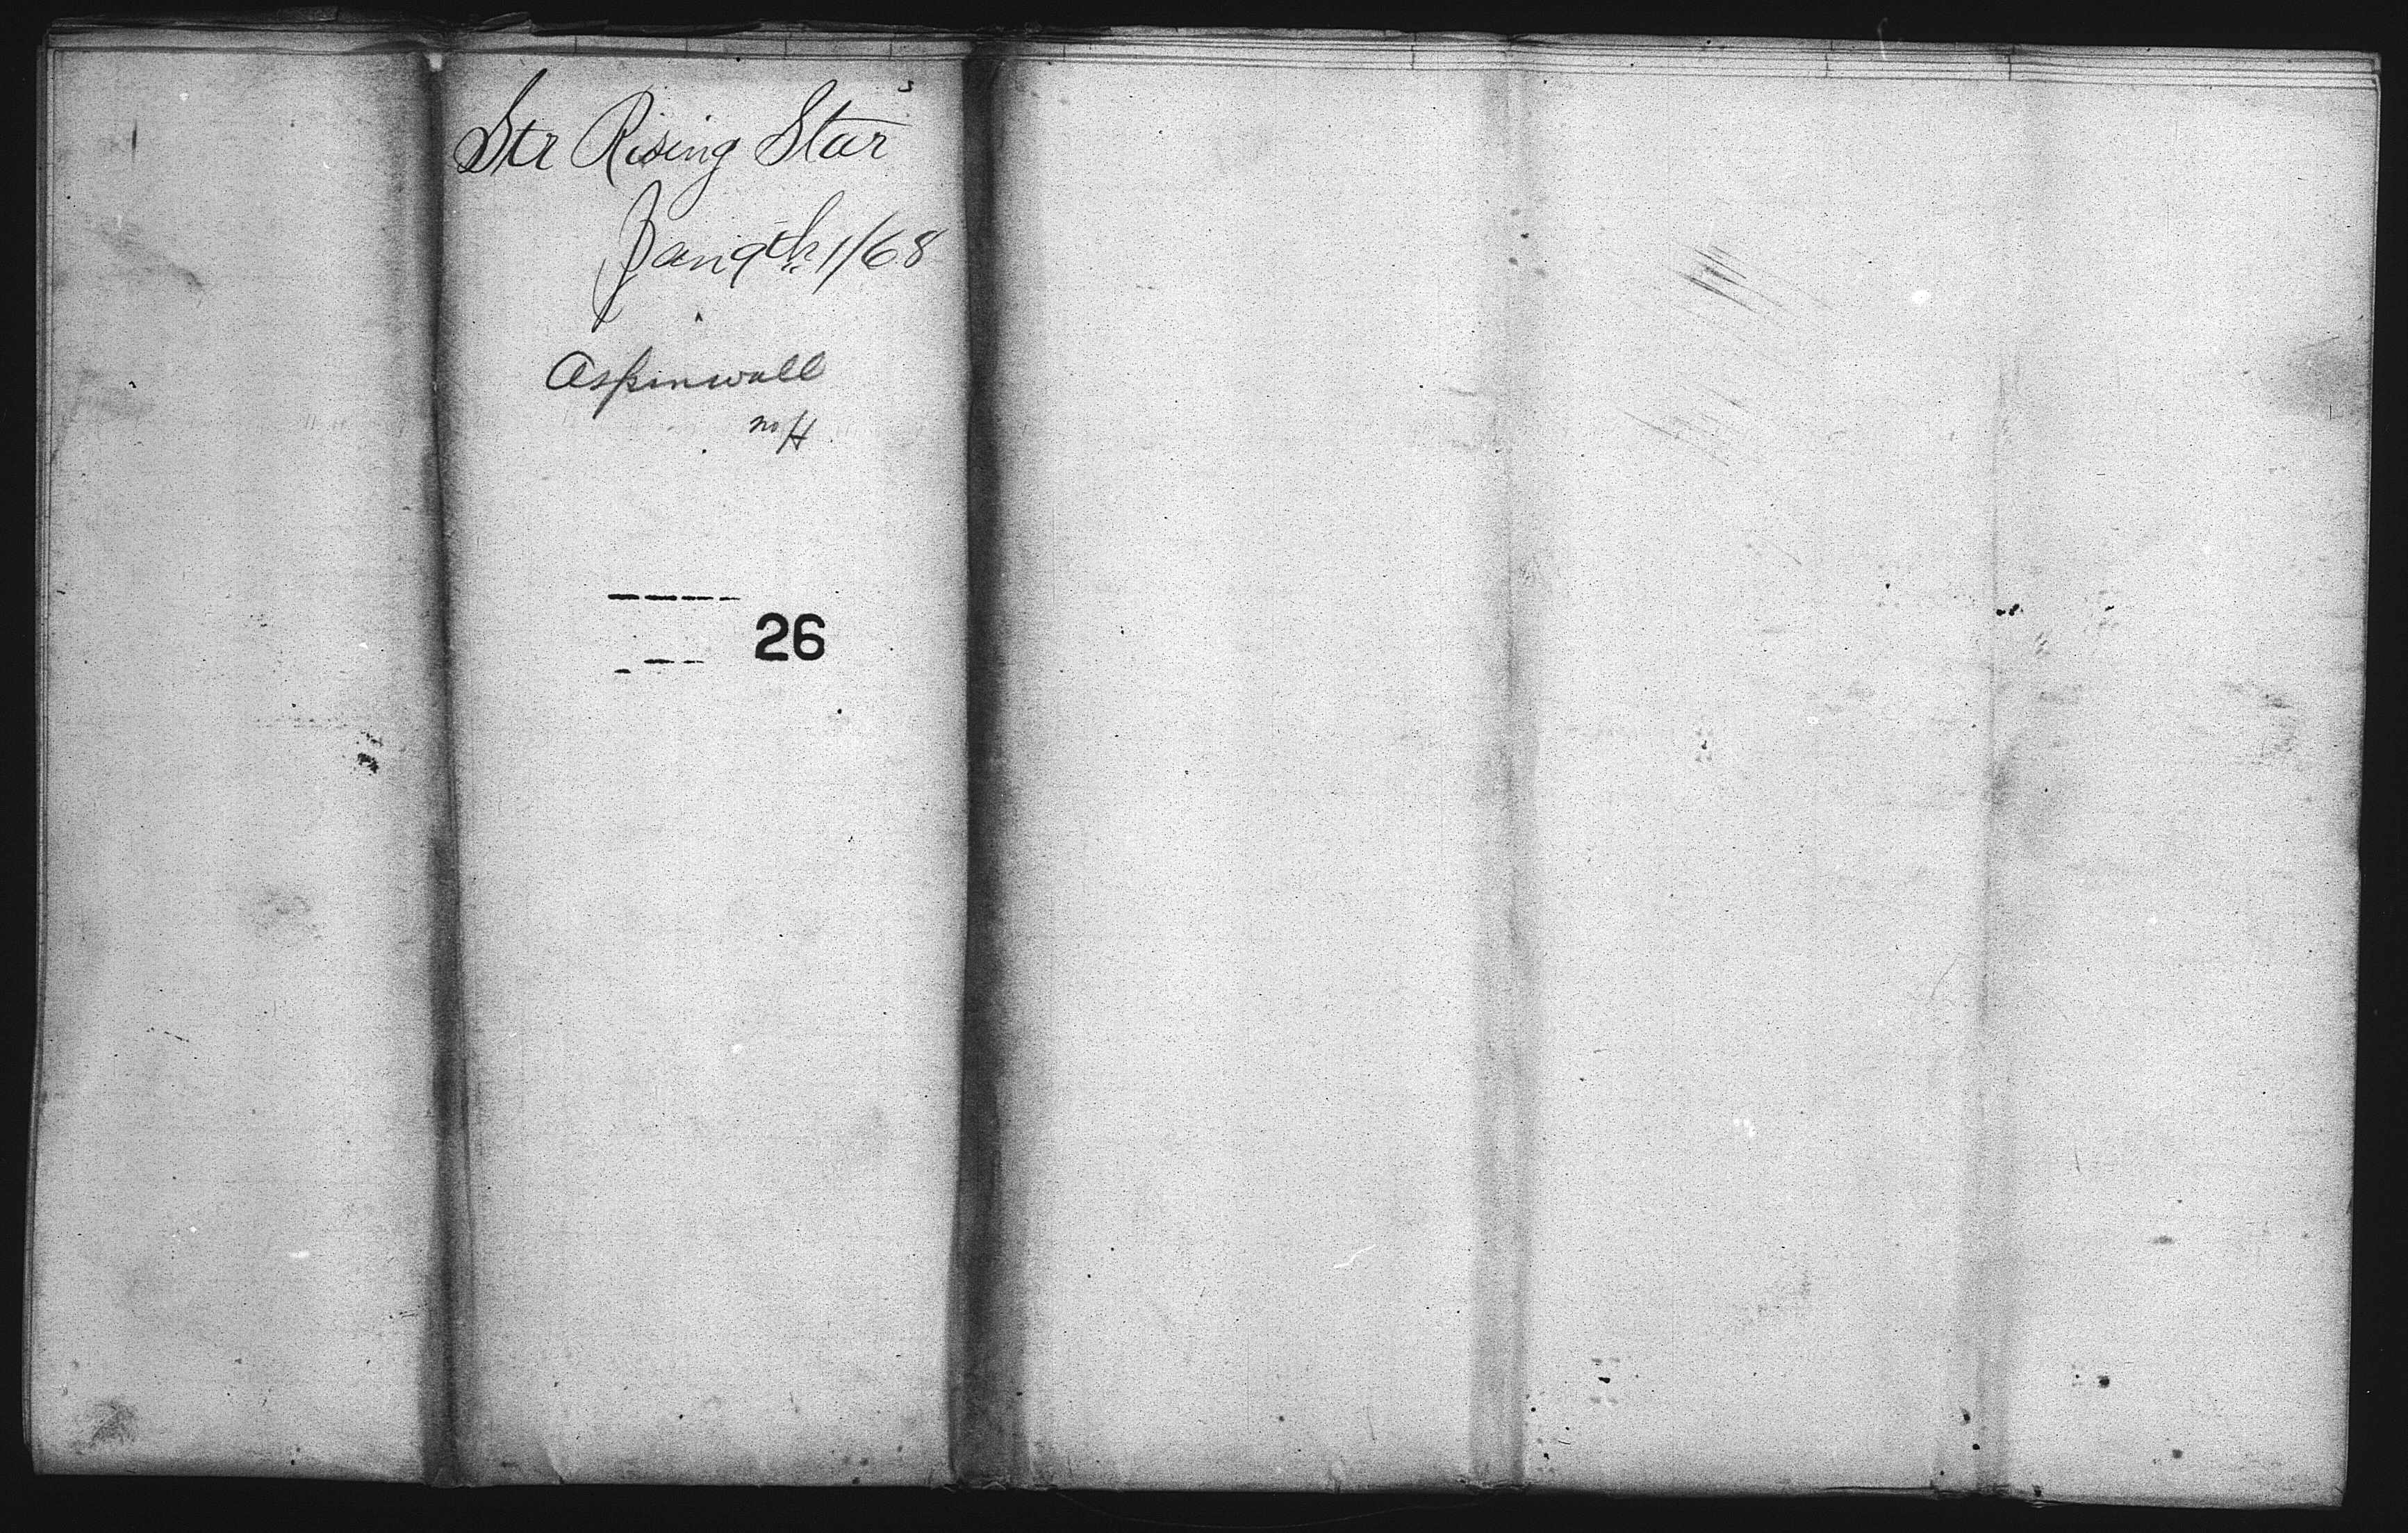 Str Rising Star
Jan 9th 1/68
Aspinwall
no H
26